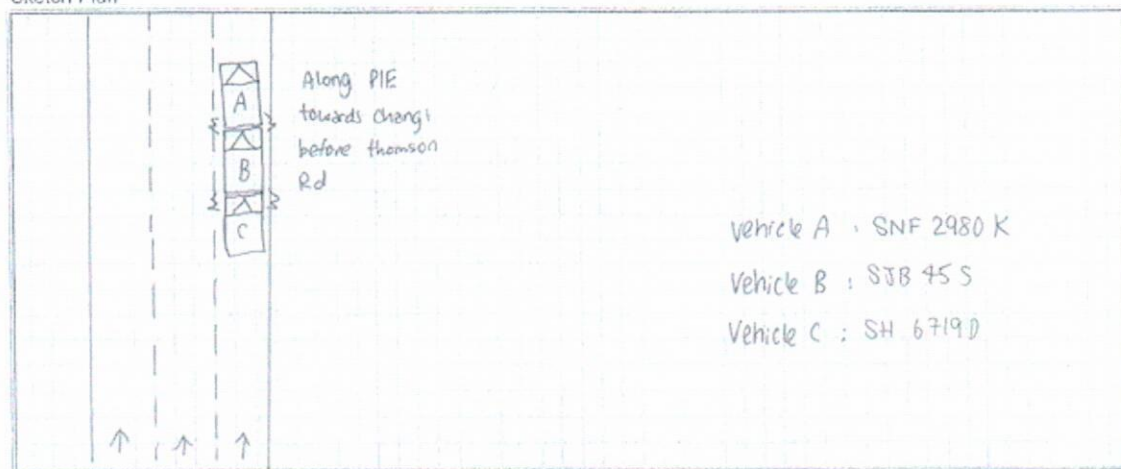 Sketch Plan
A
B
C
Along PIE
towards Changi
before thomson
Rd
Vehicle A : SNF 2980 K
Vehicle B : SJB 45 S
Vehicle C : SH 6719D